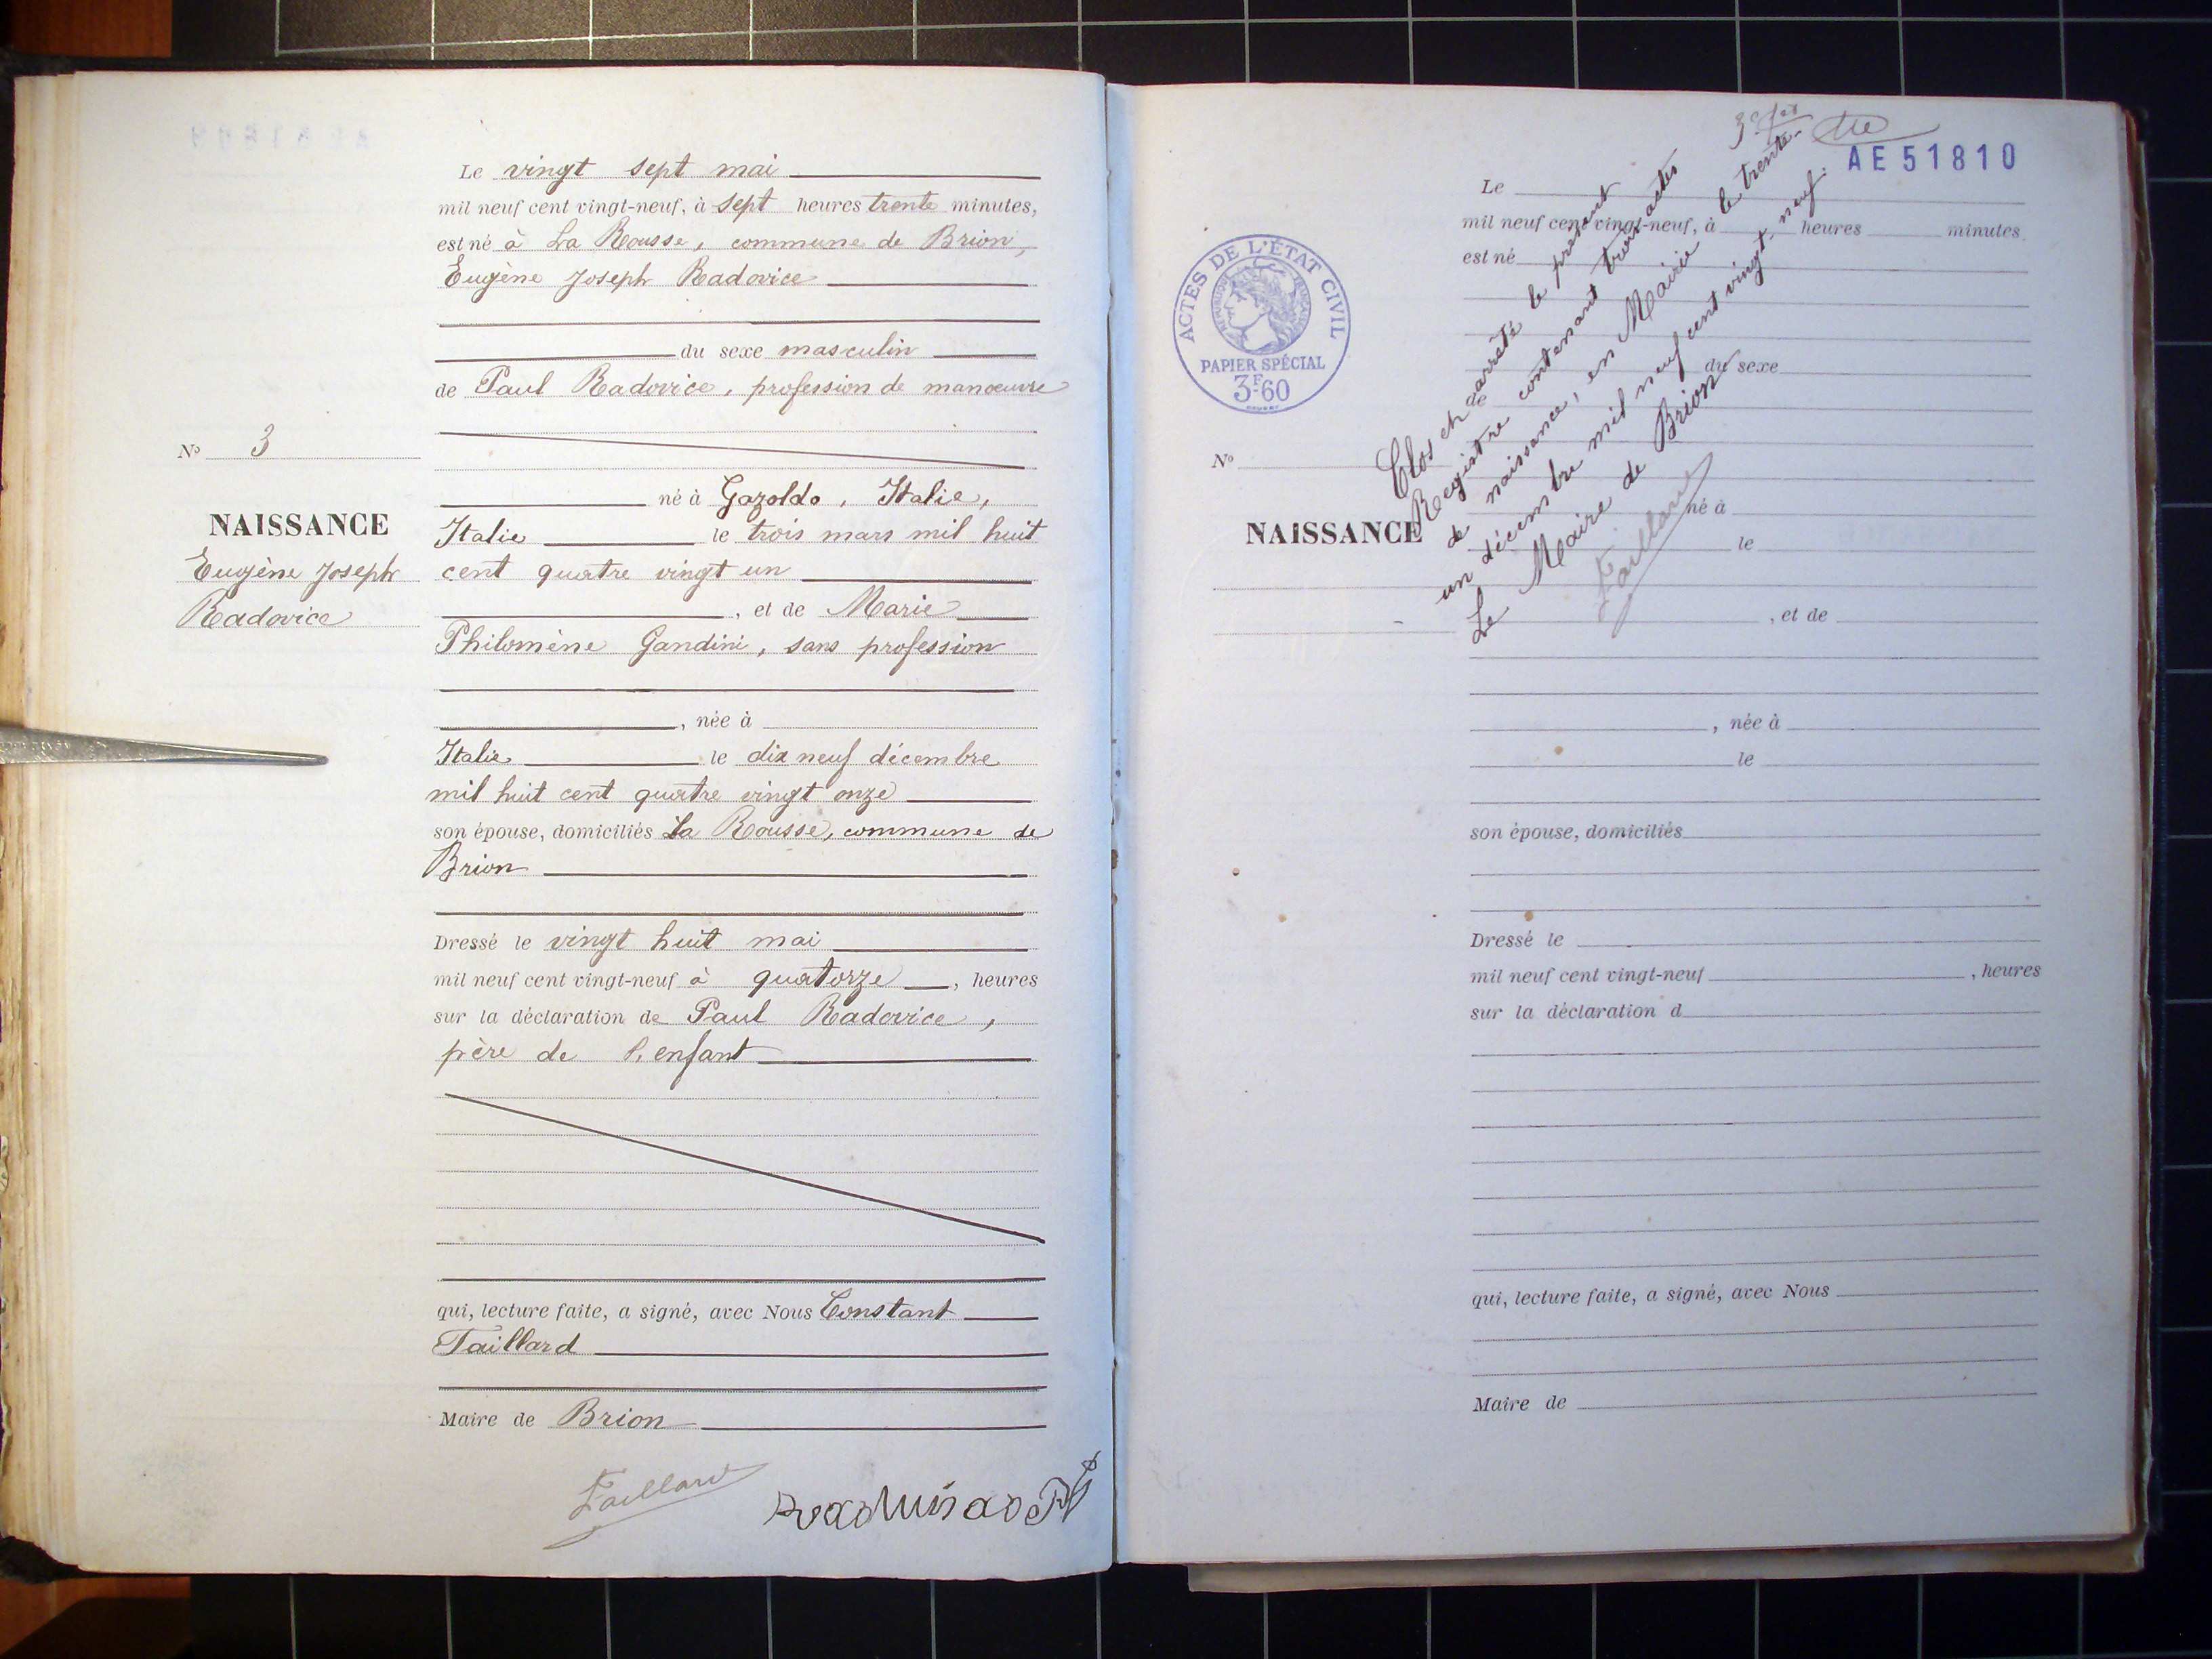 Le vingt sept mai
mil neuf cent vingt-neuf, à sept heures trente minutes,
est né à La Rousse, commune de Brion,
Eugène Joseph Radovice
du sexe masculin
de Paul Radovice, profession de manœuvre
N° 3
né à Gazoldo, Italie,
NAISSANCE
Eugène Joseph
Radovice
Italie le trois mars mil huit
cent quatre vingt un
, et de Marie
Philomène Gandini, sans profession
, née à
Italie le dix neuf décembre
mil huit cent quatre vingt onze
son épouse, domiciliés La Rousse, commune de
Brion
Dressé le vingt huit mai
mil neuf cent vingt-neuf à quatorze, heures
sur la déclaration de Paul Radovice,
père de l'enfant
qui, lecture faite, a signé, avec Nous Constant
Taillard
Maire de Brion
Taillard
AE51810
ACTES DE L'ÉTAT CIVIL
RÉPUBLIQUE FRANÇAISE
PAPIER SPÉCIAL
3F60
Clos et arrêté le présent
Registre contenant trois actes
de naissance, en Mairie le trente-
un décembre mil neuf cent vingt-neuf.
Le Maire de Brion
Taillard
Le
mil neuf cent vingt-neuf, à heures minutes
est né
du sexe
de
N°
né à
NAISSANCE
le
, et de
, née à
le
son épouse, domiciliés
Dressé le
mil neuf cent vingt-neuf , heures
sur la déclaration d
qui, lecture faite, a signé, avec Nous
Maire de